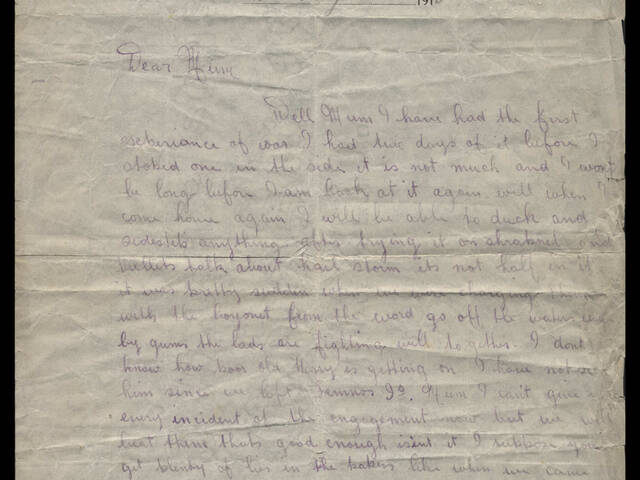 191
Dear Mum
Well Mum I have had the first
experiance of war I had two days of it before I
stoped one in the side it is not much and I wont
be long before I am back at it again. well when I
come home again I will be able to duck and
sidestep anything after trying it on shrapnel and
bullets talk about hail storm its not half in it
it was pritty suddin when we were charging them
with the bayonet from the word go off the water
by gums the lads are fighting well together. I dont
know how poor old Harry is getting on I have not
him since we left Lemnos Is. Mum I can't give
every incident of the engagement now but we
beat them thats good enough isent it I suppose you
get plenty of lies in the papers like when we came